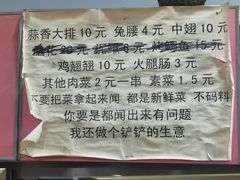 蒜香大排10元 兔腰4元 中翅10元
鸡翅翅10元 火腿肠3元
其他肉菜2元一串 素菜1.5元
不要把菜拿起来闻 都是新鲜菜 不码料
你要是都闻出来有问题
我还做个铲铲的生意